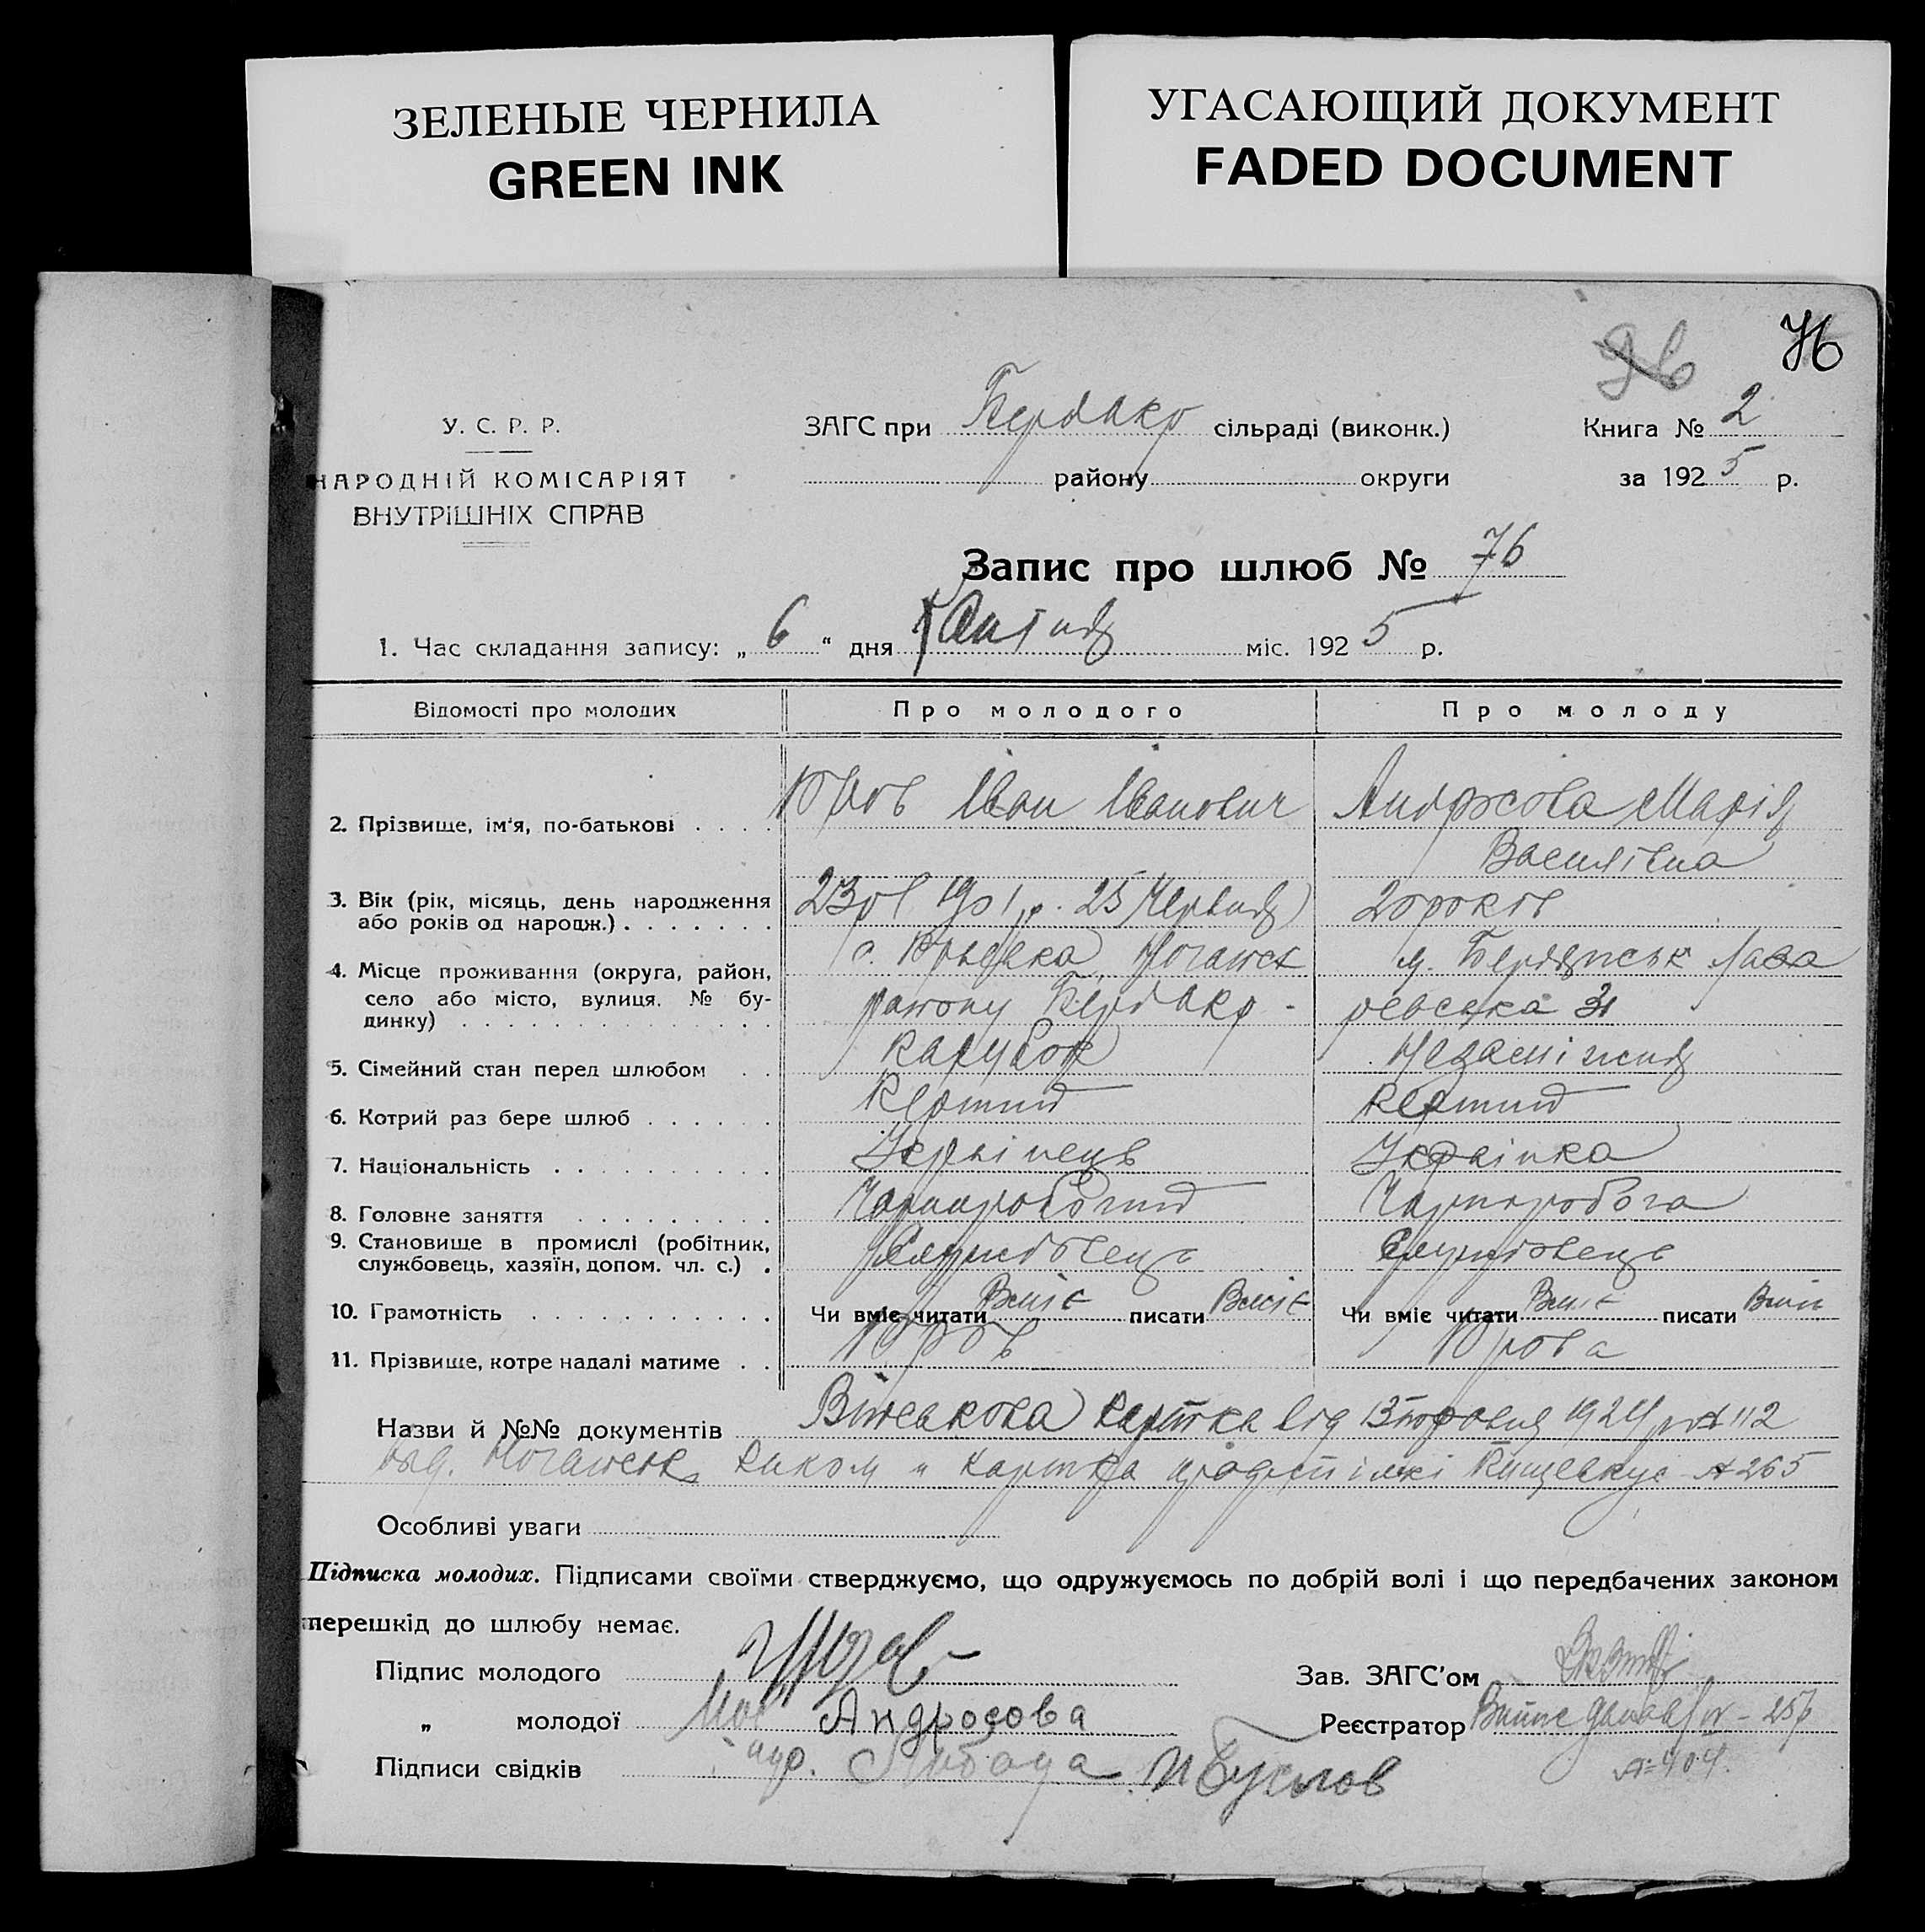 ЗЕЛЕНЫЕ ЧЕРНИЛА
GREEN INK
УГАСАЮЩИЙ ДОКУМЕНТ
FADED DOCUMENT
96 76
У. С. Р. Р.
НАРОДНІЙ КОМІСАРІЯТ
ВНУТРІШНІХ СПРАВ
ЗАГС при БердОкр сільраді (виконк.)
району округи
Книга № 2
за 1925 р.
Запис про шлюб № 76
1. Час складання запису: „ 6 “ дня міс. 1925 р.
Відомості про молодих Про молодого Про молоду
2. Прізвище, ім'я, по-батькові Юров Іван Іванович Андросова Марія
Василівна
3. Вік (рік, місяць, день народження або років од народж.) 23 р. 1901 р. 25 Червня 20 років
4. Місце проживання (округа, район, село або місто, вулиця. № будинку) с. Юрьевка Ногайск району БердОкр м. Бердянськ
5. Сімейний стан перед шлюбом парубок Незаміжня
6. Котрий раз бере шлюб Перший Перший
7. Національність Українець Українка
8. Головне заняття Чорноробочий Чорноробоча
9. Становище в промислі (робітник, службовець, хазяїн, допом. чл. с.) Службовець Службовець
10. Грамотність Чи вміє читати Вміє писати Вміє Чи вміє читати Вміє писати Вміє
11. Прізвище, котре надалі матиме Юров Юрова
Назви й №№ документів Військова картка від 1924 р № 112
выд. Ногайськ картка № 265
Особливі уваги
Підписка молодих. Підписами своїми стверджуємо, що одружуємось по добрій волі і що передбачених законом
перешкід до шлюбу немає.
Підпис молодого
Зав. ЗАГС'ом
„ молодої Андросова
Реєстратор
Підписи свідків